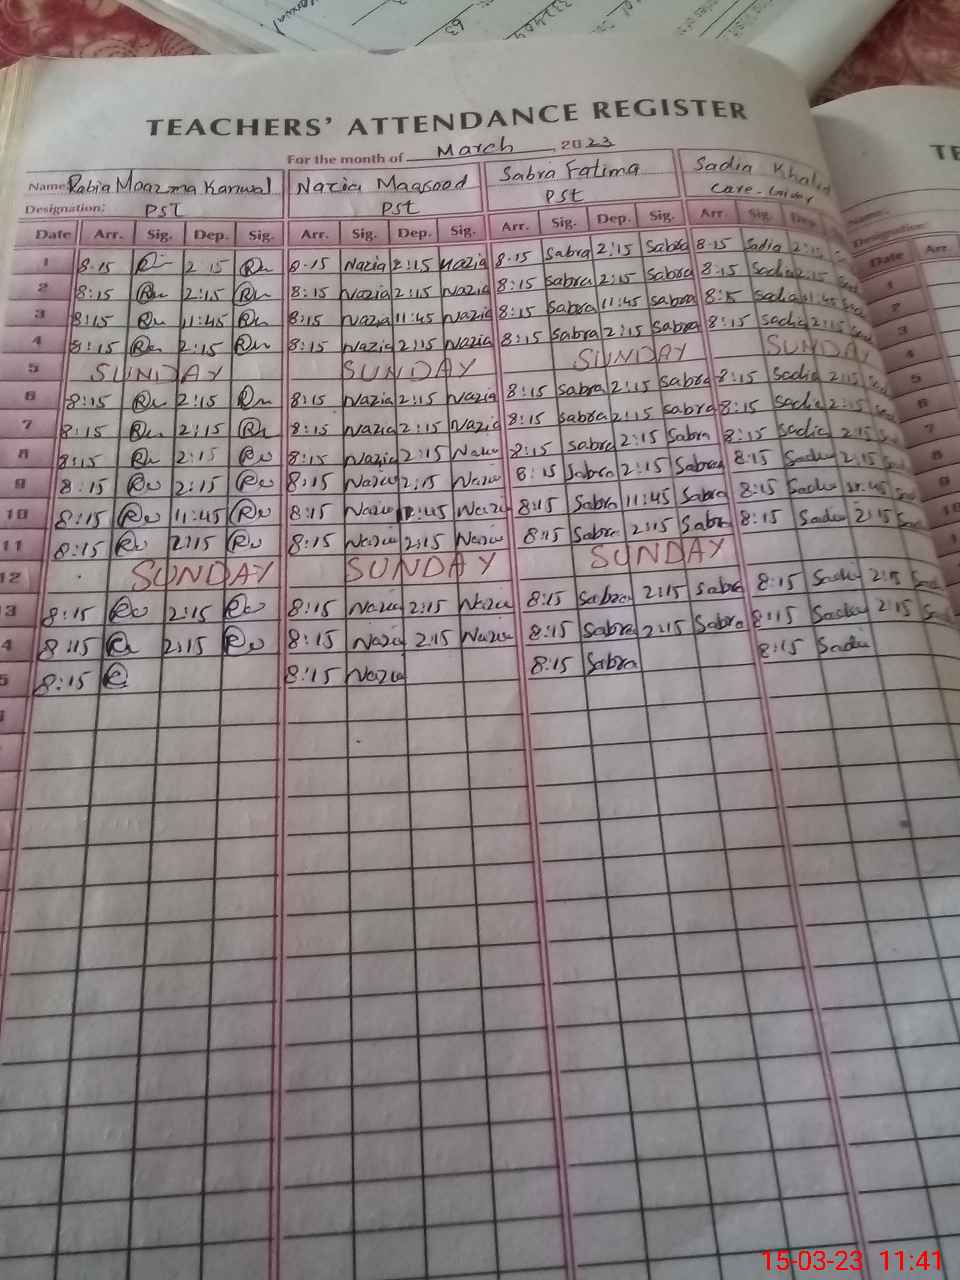 TEACHERS' ATTENDANCE REGISTER
For the month of March, 2023
Name: Rabia Moazma Kanwal Nazia Maqsood Sabra Fatima Sadia Khalid
Designation: PST PST PST Care-Giver
Date Arr. Sig. Dep. Sig. Arr. Sig. Dep. Sig. Arr. Sig. Dep. Sig. Arr. Sig. Dep.
1 8:15 2:15 8:15 Nazia 2:15 Nazia 8:15 Sabra 2:15 Sabra 8:15 Sadia 2:15
2 8:15 2:15 8:15 Nazia 2:15 Nazia 8:15 Sabra 2:15 Sabra 8:15 Sadia 2:15
3 8:15 11:45 8:15 Nazia 11:45 Nazia 8:15 Sabra 11:45 Sabra 8:15 Sadia 11:45
4 8:15 2:15 8:15 Nazia 2:15 Nazia 8:15 Sabra 2:15 Sabra 8:15 Sadia 2:15
5 SUNDAY SUNDAY SUNDAY SUNDAY
6 8:15 2:15 8:15 Nazia 2:15 Nazia 8:15 Sabra 2:15 Sabra 8:15 Sadia 2:15
7 8:15 2:15 8:15 Nazia 2:15 Nazia 8:15 Sabra 2:15 Sabra 8:15 Sadia 2:15
8 8:15 2:15 8:15 Nazia 2:15 Nazia 8:15 Sabra 2:15 Sabra 8:15 Sadia 2:15
9 8:15 2:15 8:15 Nazia 2:15 Nazia 8:15 Sabra 2:15 Sabra 8:15 Sadia 2:15
10 8:15 11:45 8:15 Nazia 11:45 Nazia 8:15 Sabra 11:45 Sabra 8:15 Sadia 11:45
11 8:15 2:15 8:15 Nazia 2:15 Nazia 8:15 Sabra 2:15 Sabra 8:15 Sadia 2:15
12 SUNDAY SUNDAY SUNDAY
3 8:15 2:15 8:15 Nazia 2:15 Nazia 8:15 Sabra 2:15 Sabra 8:15 Sadia 2:15
4 8:15 2:15 8:15 Nazia 2:15 Nazia 8:15 Sabra 2:15 Sabra 8:15 Sadia 2:15
5 8:15 8:15 Nazia 8:15 Sabra 8:15 Sadia
15-03-23 11:41